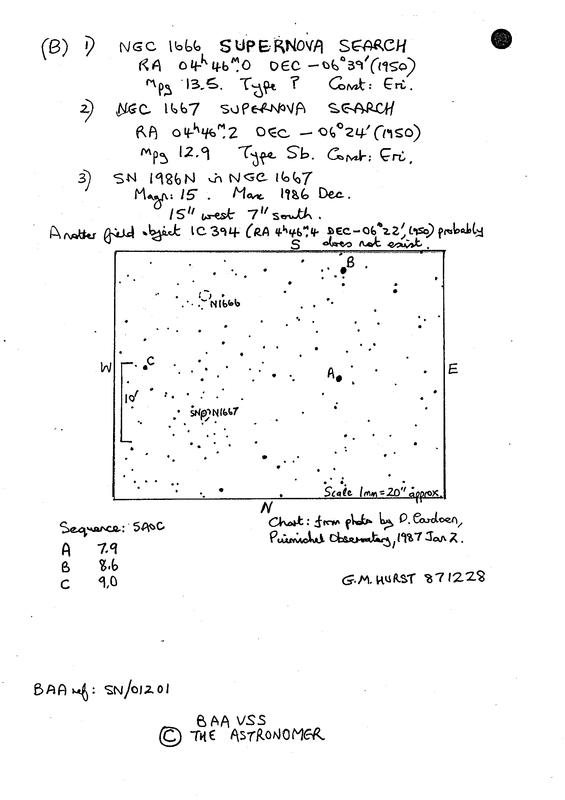 (B) 1) NGC 1666 SUPERNOVA SEARCH
RA 04ʰ46ᵐ.0 DEC -06°39'(1950)
Mpg 13.5. Type ? Const: Eri.
2) NGC 1667 SUPERNOVA SEARCH
RA 04ʰ46ᵐ.2 DEC -06°24'(1950)
Mpg 12.9 Type Sb. Const: Eri.
3) SN 1986N in NGC 1667
Magn: 15. Max 1986 Dec.
15" west 7" south.
Another field object IC 394 (RA 4ʰ46ᵐ.4 DEC-06°22',1950) probably
does not exist.
S
B
N1666
W
C
A
E
10'
SN N1667
Scale 1mm=20" approx.
N
Sequence: SAOC
A 7.9
B 8.6
C 9.0
Chart: from photo by D. Cardoen,
Puimichel Observatory, 1987 Jan 2.
G.M. HURST 871228
BAA ref: SN/01201
BAA VSS
© THE ASTRONOMER